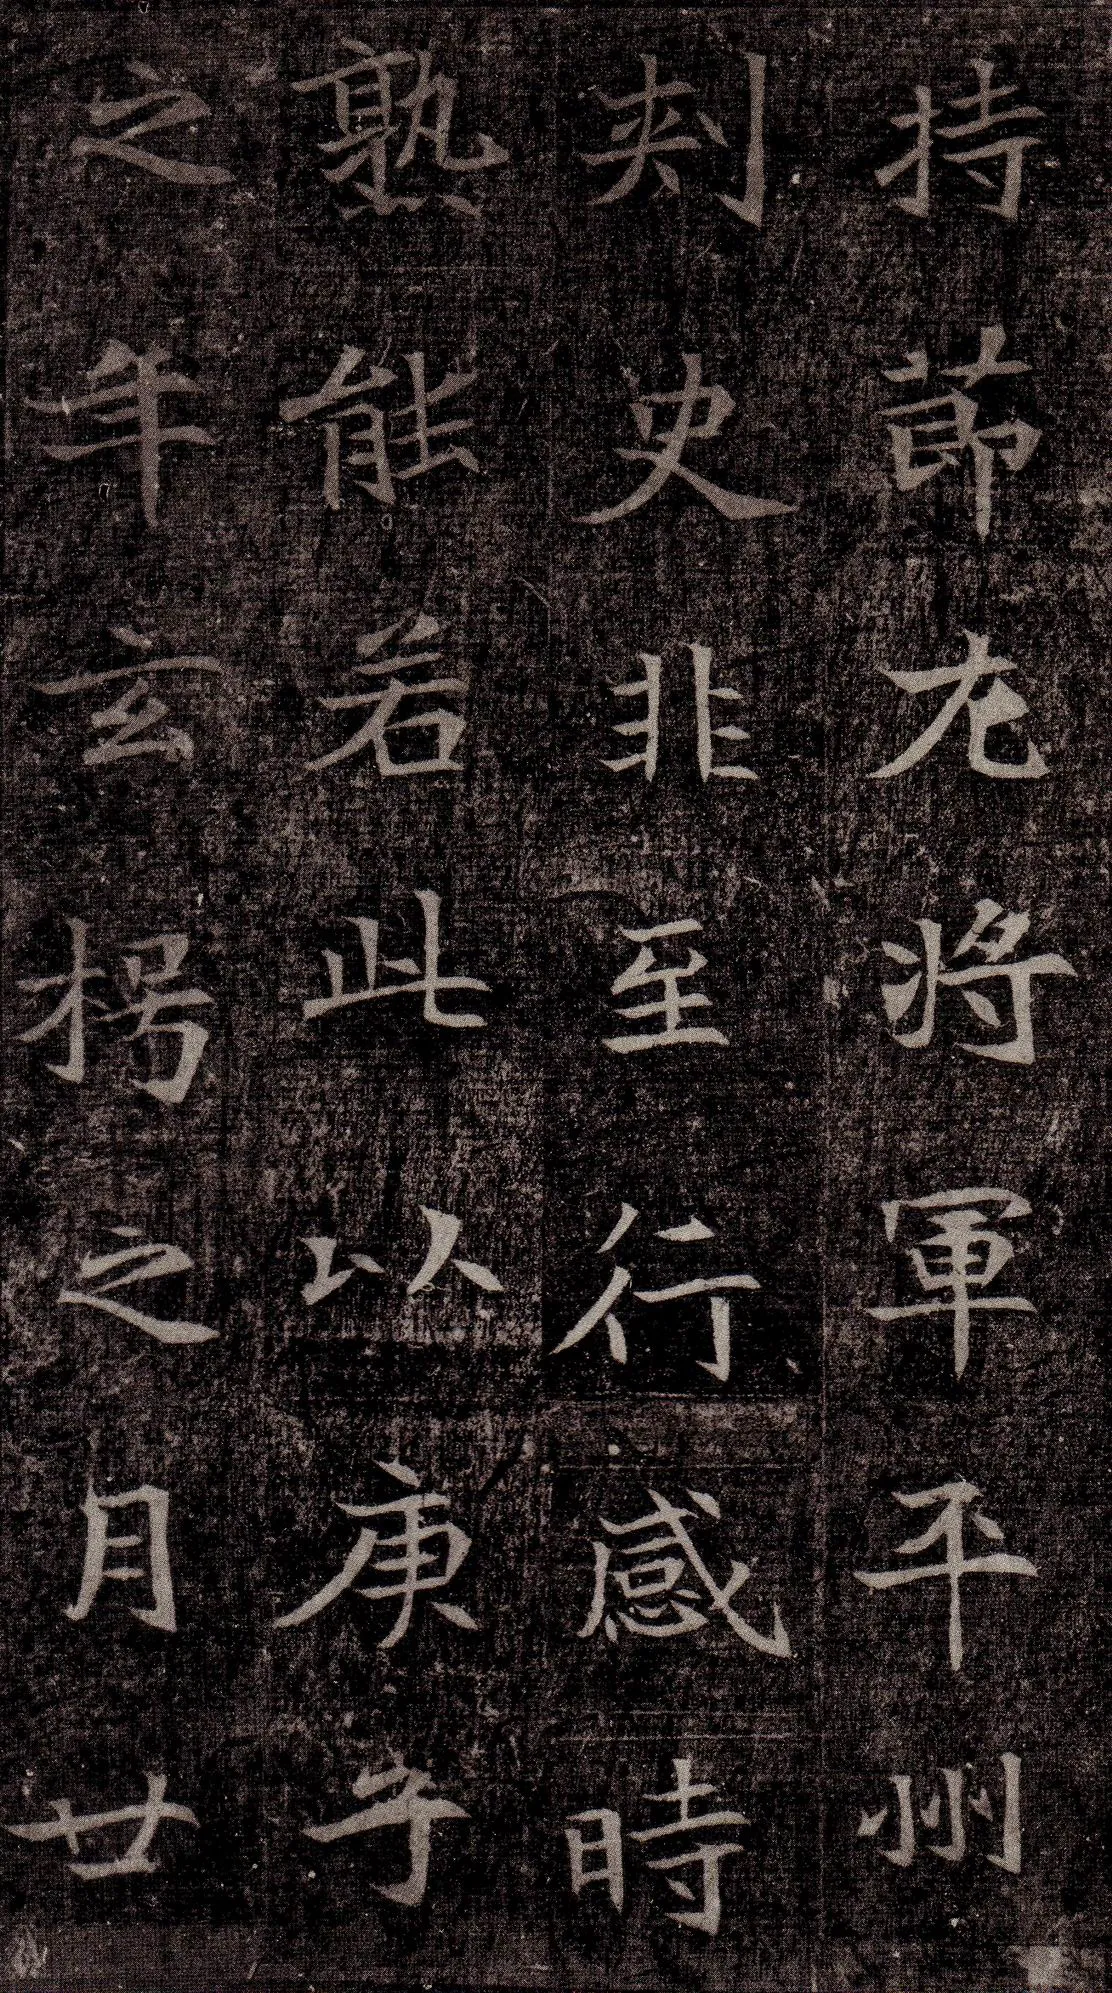 持節左將軍平州
刾史非至行感時
熟能若此以庚子
之年玄枵之月廿